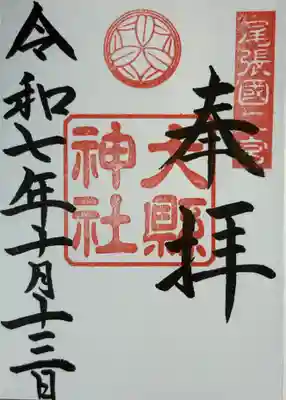 尾張國二宮
奉拝
大縣神社
令和七年十月十三日